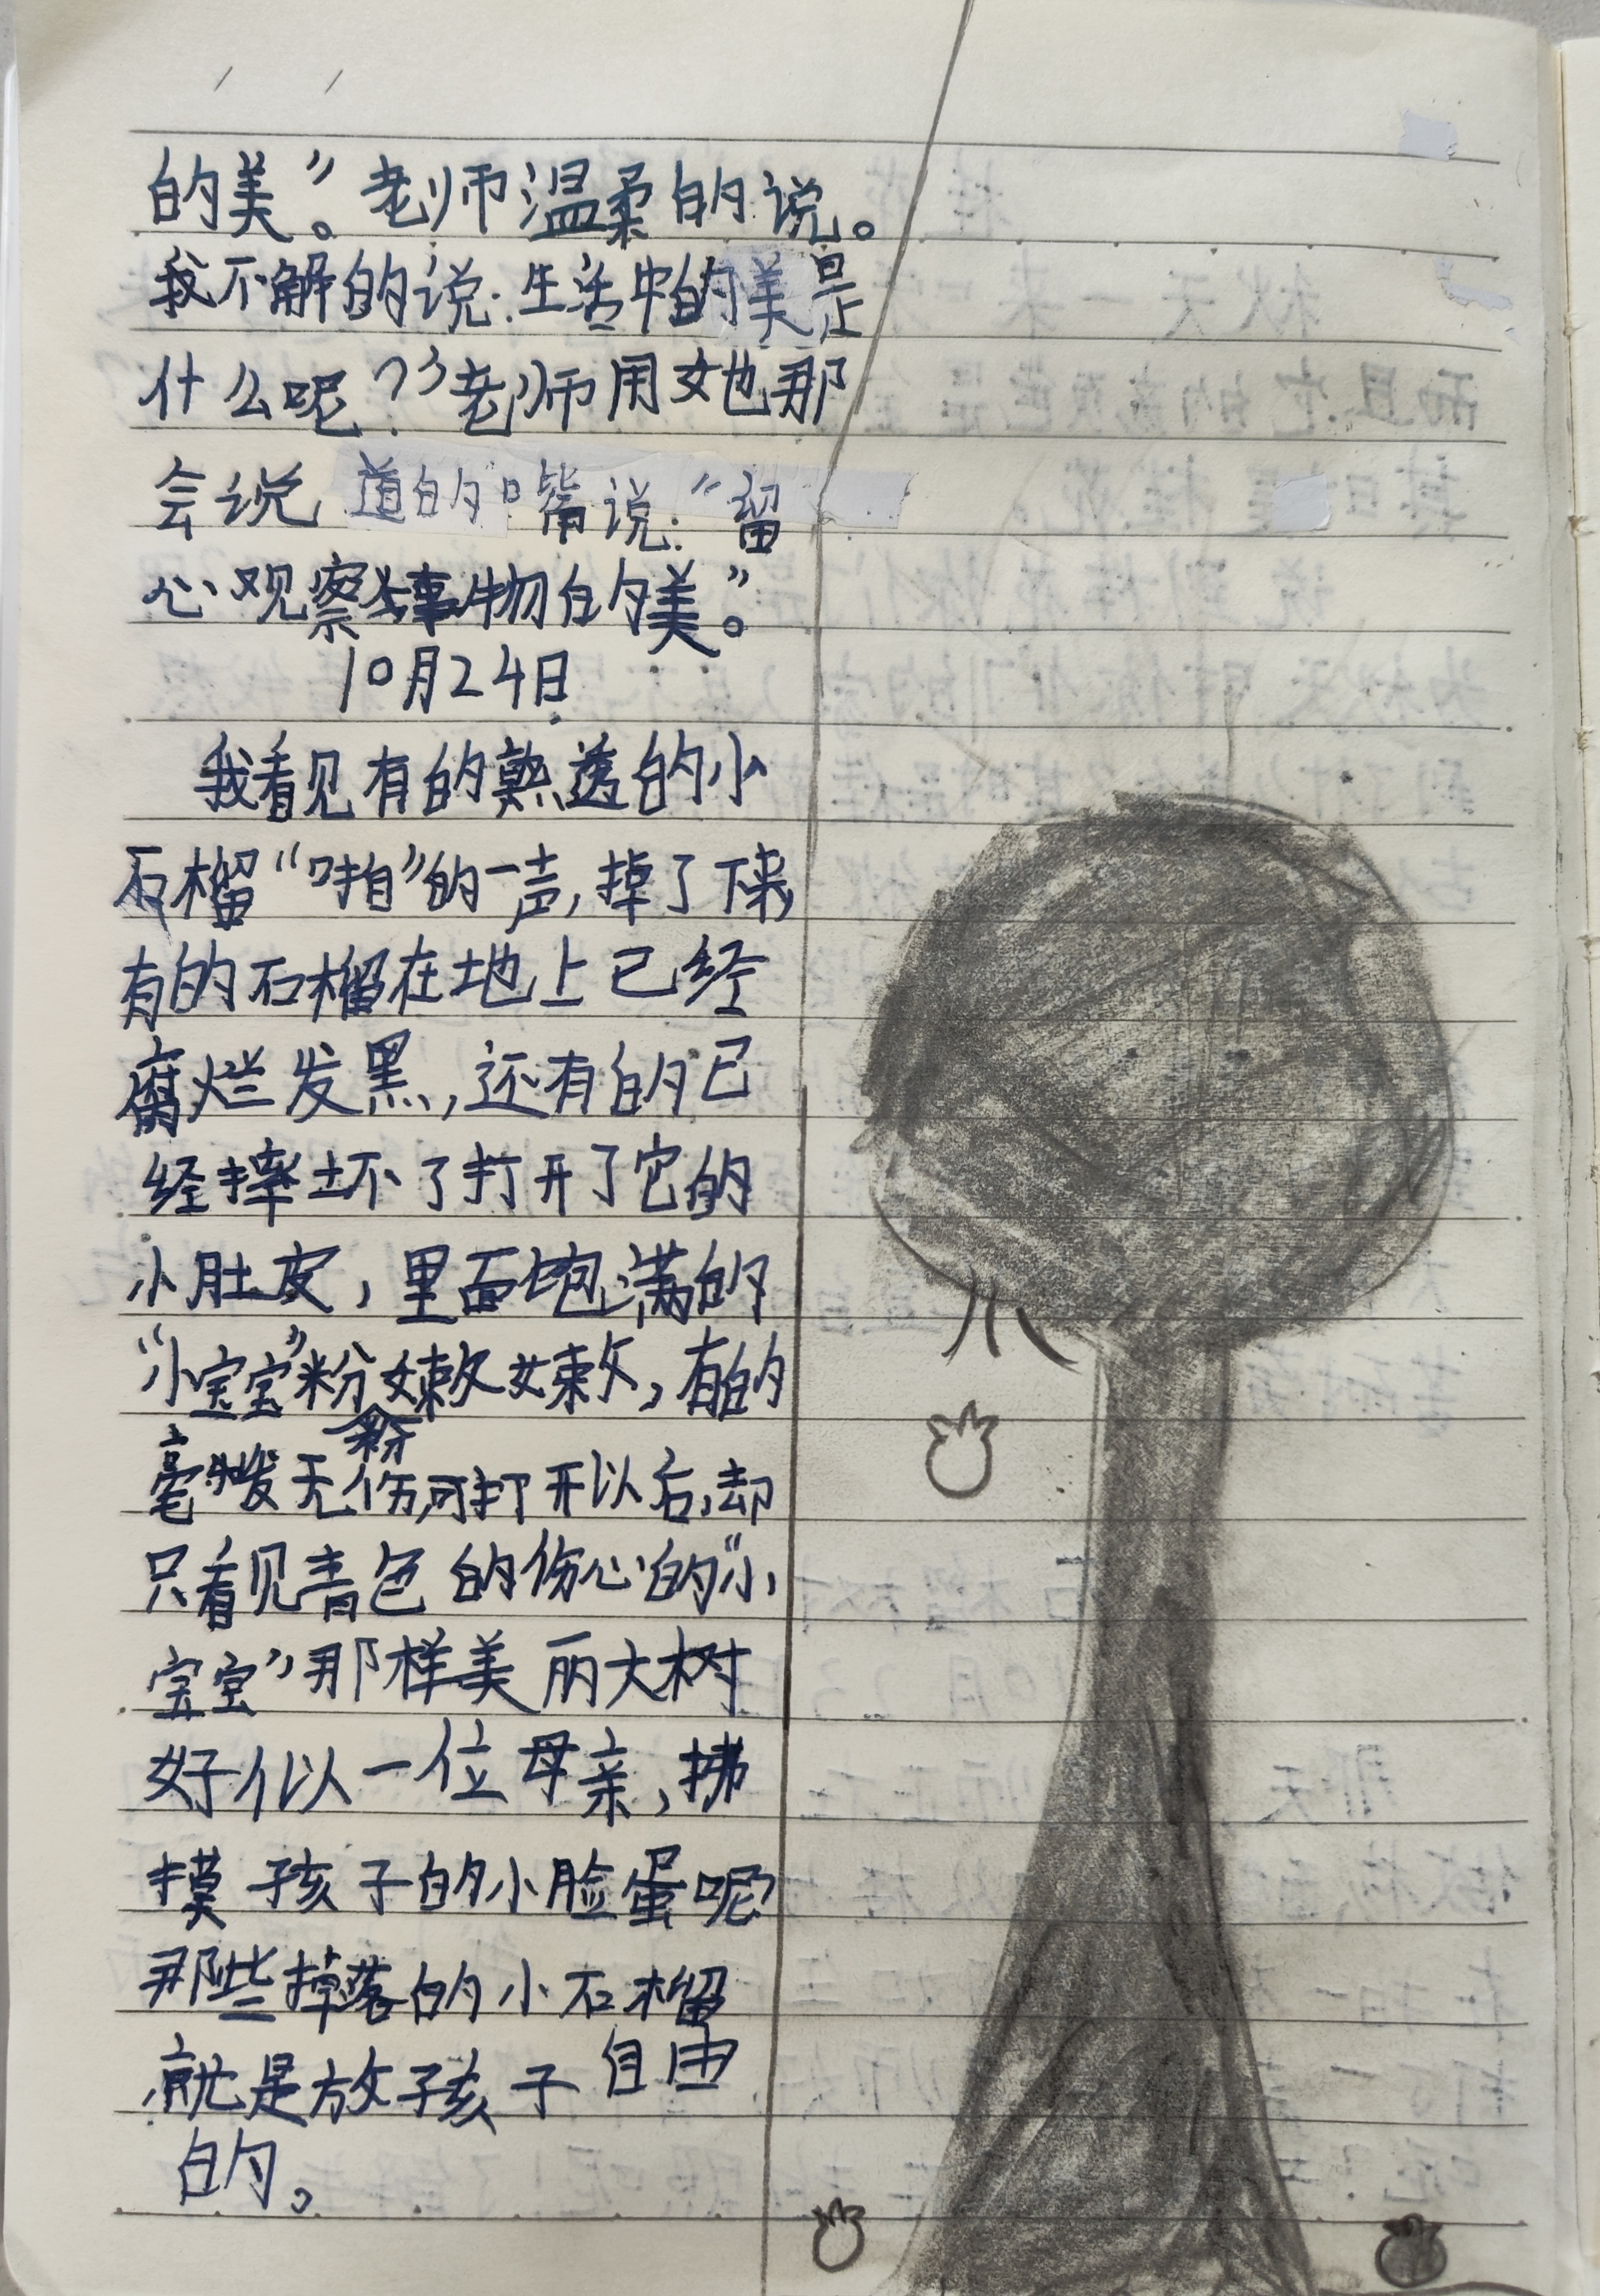 的美。”老师温柔的说。
我不解的说:生活中的美是
什么呢?”老师用她那
会说道的嘴说:“留
心观察事物的美。”
10月24日
我看见有的熟透的小
石榴“啪”的一声,掉了下来,
有的石榴在地上已经
腐烂发黑,还有的已
经摔坏了打开了它的
小肚皮,里面饱满的
“小宝宝”粉嫩嫩,有的
粉
毫发无伤,可打开以后,却
只看见青色的伤心的“小
宝宝”那样美丽大树
好似一位母亲,拂
摸孩子的小脸蛋呢
那些掉落的小石榴
就是放孩子自由
的。